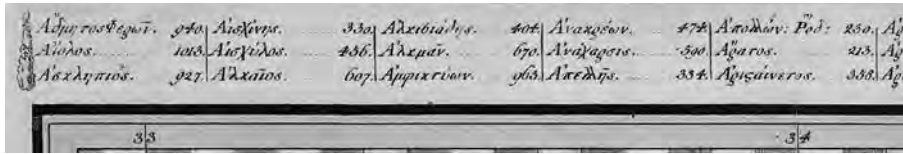 Ἄδμητος Φερῶν. 940. Αἰσχίνης. 330. Ἀλκιβιάδης. 404. Ἀνακρέων. 474. Ἀπολλών: Ῥόδ: 230. Ἀρ
Αἴολος. 1013. Αἰσχύλος. 436. Ἀλκμαν. 670. Ἀνάχαρσις. 590. Ἄρατος. 213. Ἀρ
Ἀσκληπιός. 927. Ἀλκαῖος. 607. Ἀμφικτύων. 963. Ἀπελλῆς. 334. Ἀρισαίνετος. 338. Ἀρ
33 34